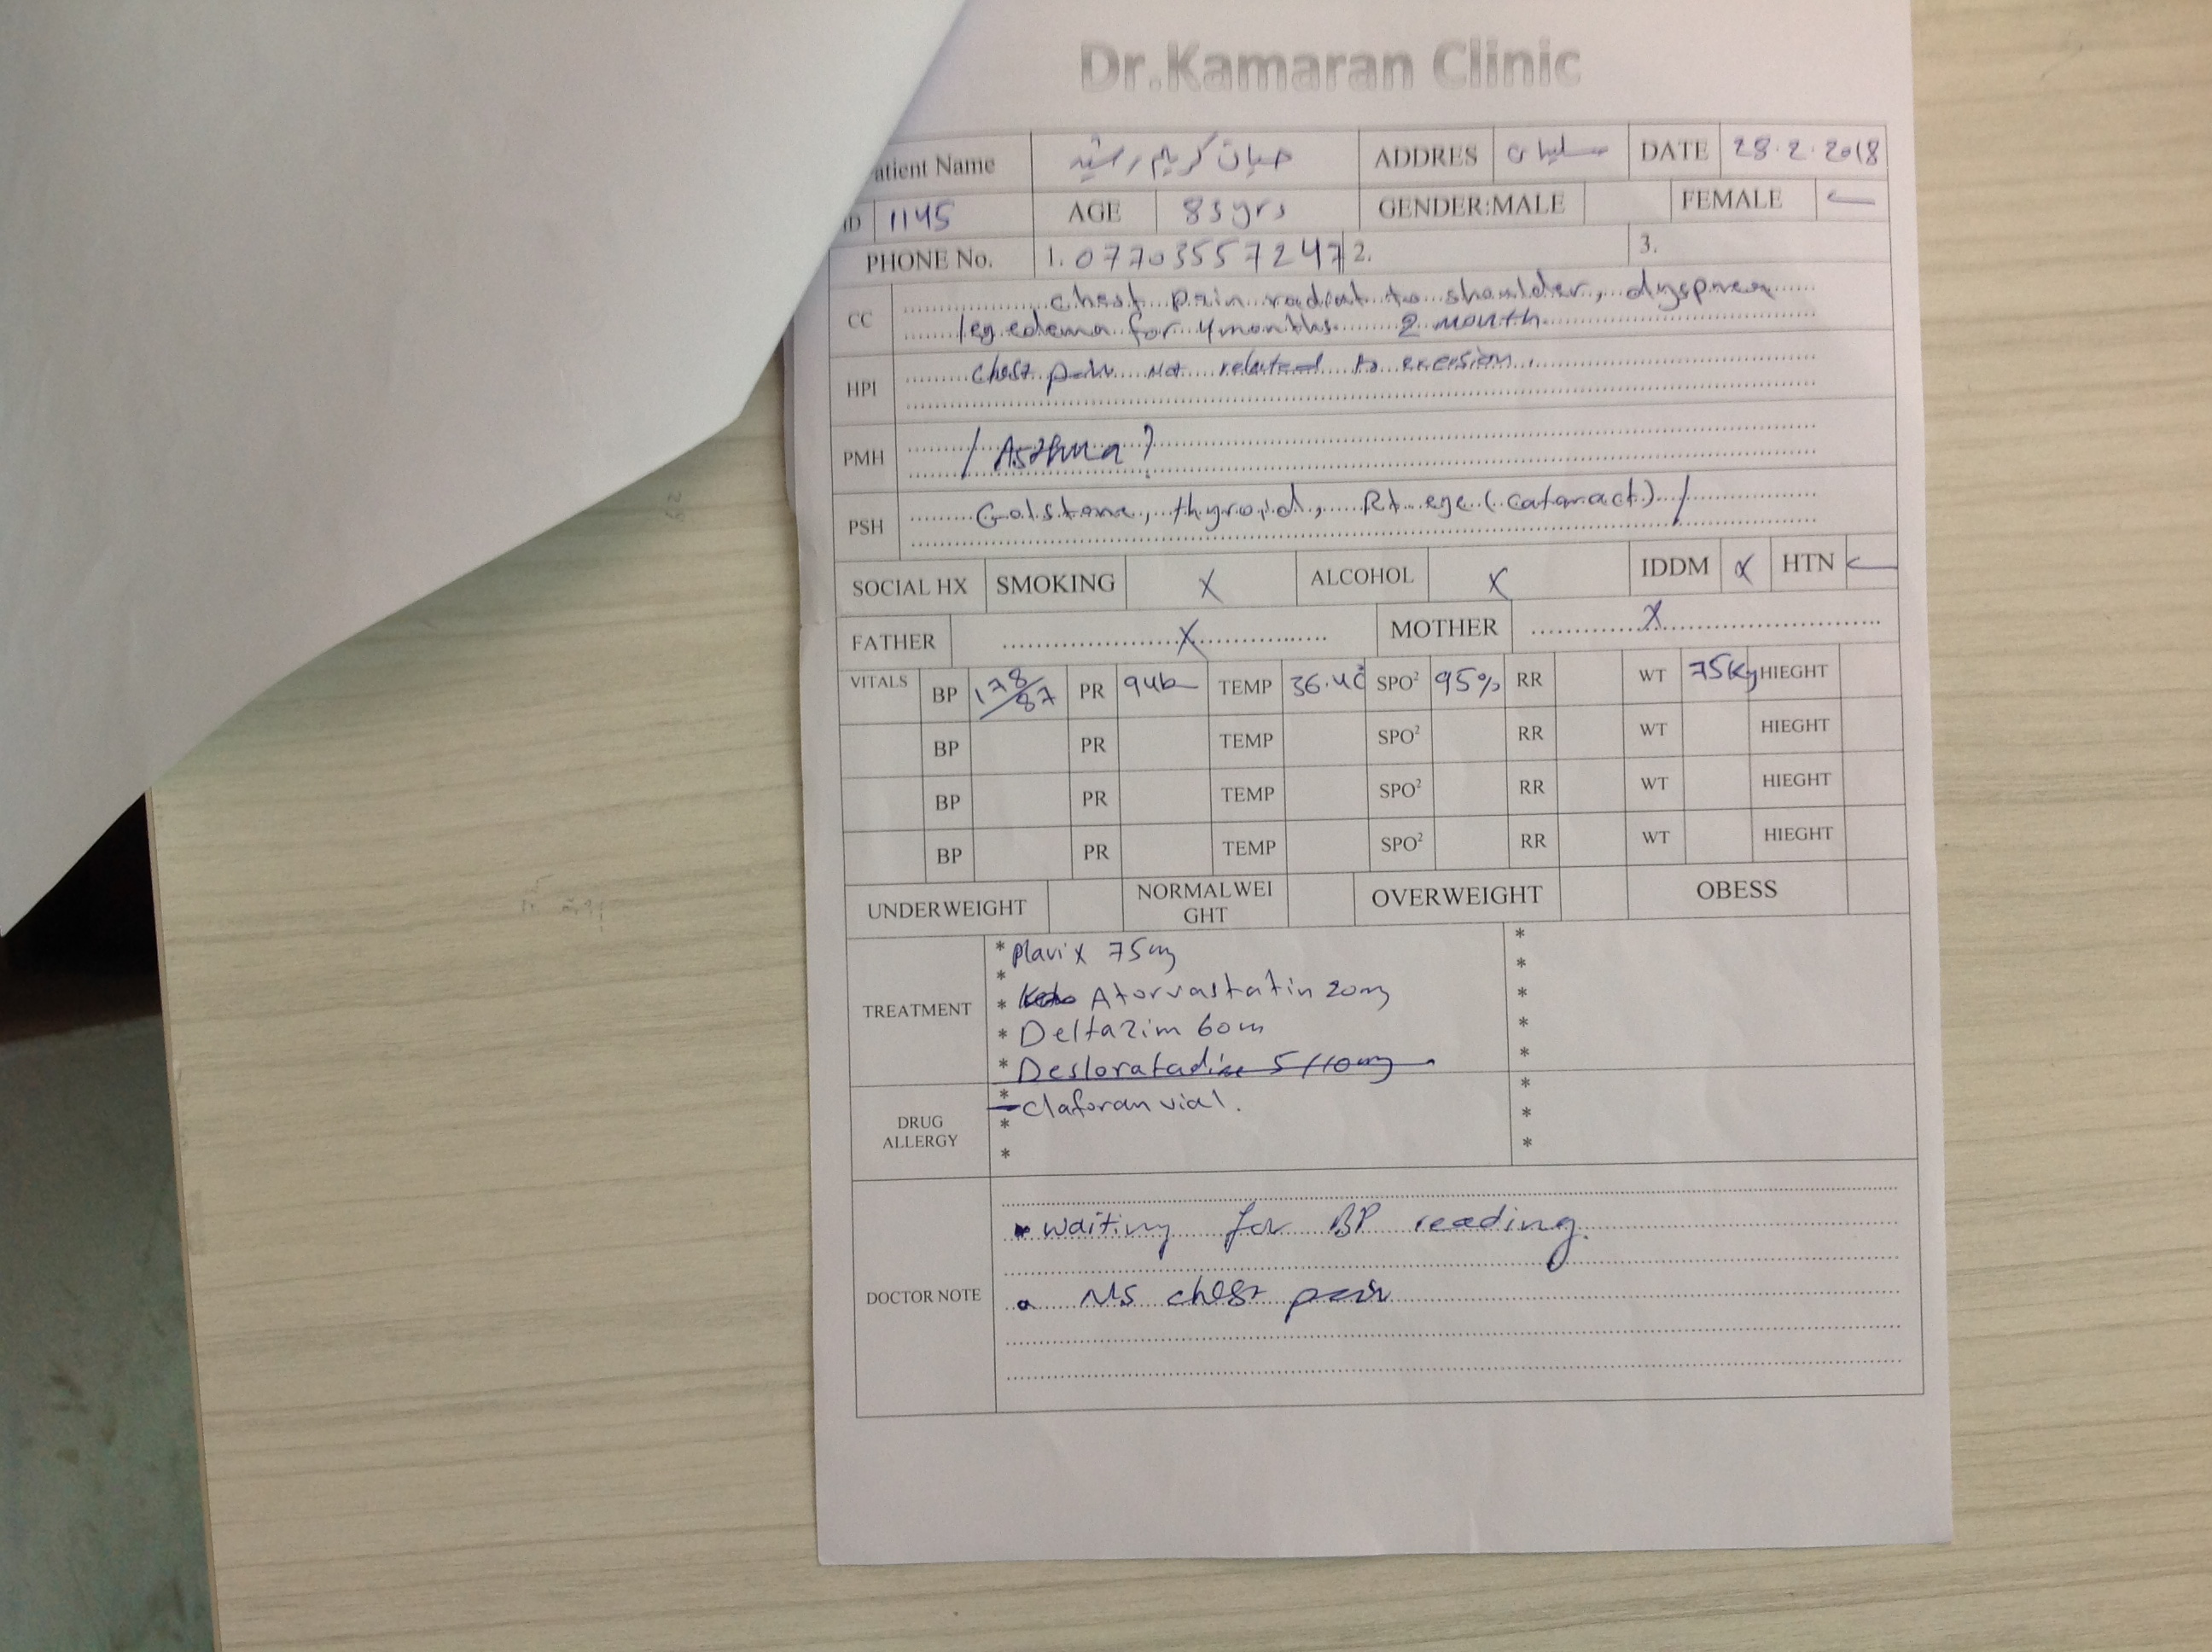 Dr.Kamaran Clinic
atient Name کریم رشید ADDRES DATE 28.2.2018
ID 1145 AGE 85yrs GENDER:MALE FEMALE
PHONE No. 1. 07703557247 2. 3.
CC chest pain radiat to shoulder, dyspnea
leg edema for 4 months 2 month
HPI chest pain not related to exersion
PMH / Asthma?
PSH Galstone, thyroid, Rt eye (cataract) /
SOCIAL HX SMOKING X ALCOHOL X IDDM X HTN
FATHER X MOTHER X
VITALS BP 178/87 PR 94b TEMP 36.4c SPO² 95% RR WT 75Kg HIEGHT
BP PR TEMP SPO² RR WT HIEGHT
BP PR TEMP SPO² RR WT HIEGHT
BP PR TEMP SPO² RR WT HIEGHT
UNDERWEIGHT NORMALWEI
GHT OVERWEIGHT OBESS
TREATMENT
* Plavix 75mg
*
* Atorvastatin 20mg
* Deltazim 60m
* Desloratadine 5/10mg
DRUG
ALLERGY
* - claforan vial.
*
*
DOCTOR NOTE
waiting for BP reading.
MS chest pain